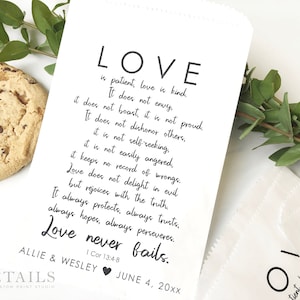 LOVE
is patient, love is kind.
It does not envy,
it does not boast, it is not proud.
It does not dishonor others,
it is not self-seeking,
it is not easily angered,
it keeps no record of wrongs.
Love does not delight in evil
but rejoices with the truth.
It always protects, always trusts,
always hopes, always perseveres.
Love never fails.
1 Cor 13:4-8
ALLIE & WESLEY ♥ JUNE 4, 20xx
ETAILS